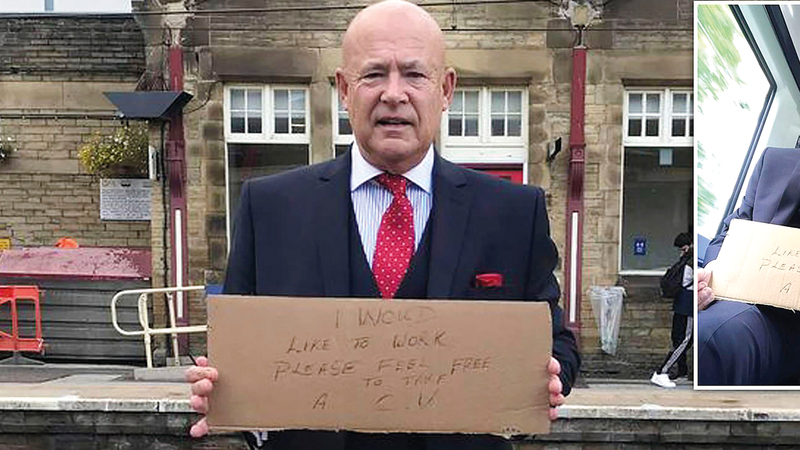 I WOULD
LIKE TO WORK
PLEASE FEEL FREE
TO TAKE
A C.V
LIKE
PLEASE
A